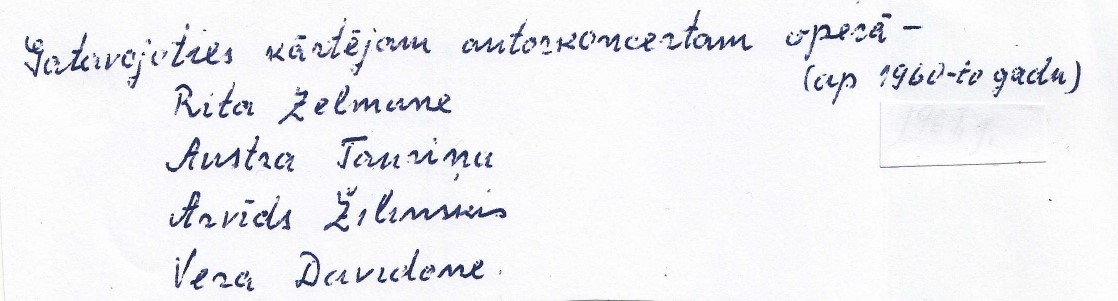 Gatavojoties kārtējam autorkoncertam operā –
(ap 1960-to gadu)
1968 g.
Rita Zelmane
Austra Tauriņa
Arvīds Žilinskis
Vera Davidone.